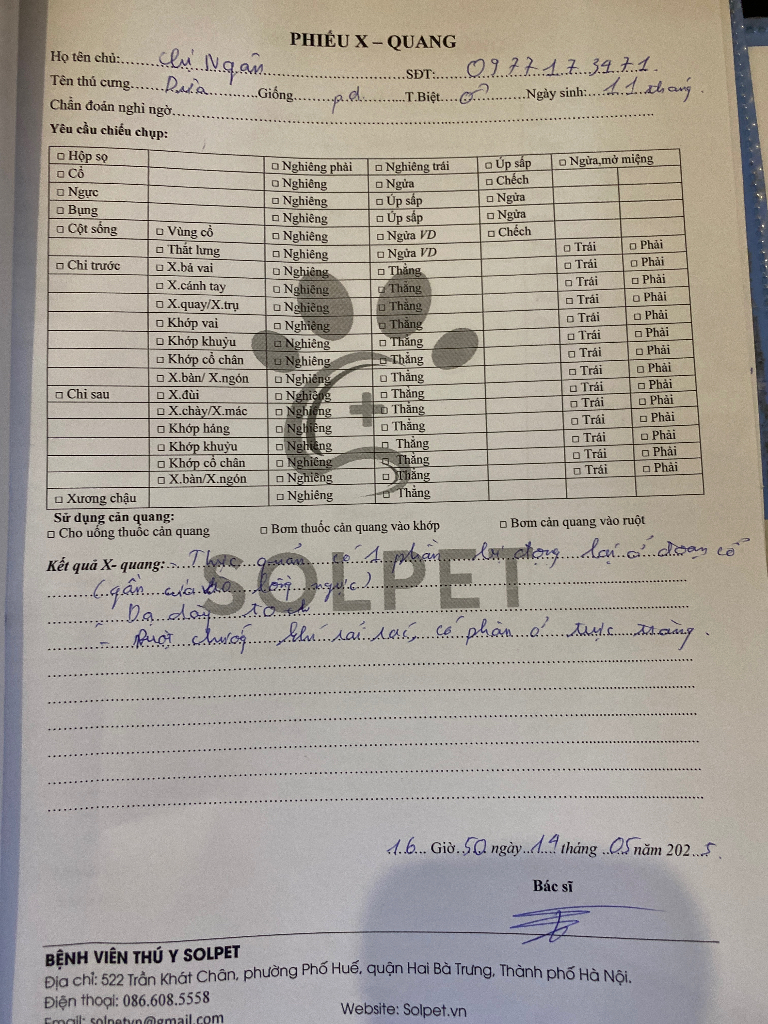 PHIẾU X – QUANG
Họ tên chủ: Chị Ngân SĐT: 0977173471
Tên thú cưng Dừa Giống p.d T.Biệt ♂ Ngày sinh: 11 tháng
Chẩn đoán nghi ngờ
Yêu cầu chiếu chụp:
□ Hộp sọ □ Nghiêng phải □ Nghiêng trái □ Úp sấp □ Ngửa,mở miệng
□ Cổ □ Nghiêng □ Ngửa □ Chếch
□ Ngực □ Nghiêng □ Úp sấp □ Ngửa
□ Bụng □ Nghiêng □ Úp sấp □ Ngửa
□ Cột sống □ Vùng cổ □ Nghiêng □ Ngửa VD □ Chếch
□ Thắt lưng □ Nghiêng □ Ngửa VD □ Trái □ Phải
□ Chi trước □ X.bá vai □ Nghiêng □ Thẳng □ Trái □ Phải
□ X.cánh tay □ Nghiêng □ Thẳng □ Trái □ Phải
□ X.quay/X.trụ □ Nghiêng □ Thẳng □ Trái □ Phải
□ Khớp vai □ Nghiêng □ Thẳng □ Trái □ Phải
□ Khớp khuỷu □ Nghiêng □ Thẳng □ Trái □ Phải
□ Khớp cổ chân □ Nghiêng □ Thẳng □ Trái □ Phải
□ X.bàn/ X.ngón □ Nghiêng □ Thẳng □ Trái □ Phải
□ Chi sau □ X.đùi □ Nghiêng □ Thẳng □ Trái □ Phải
□ X.chày/X.mác □ Nghiêng □ Thẳng □ Trái □ Phải
□ Khớp háng □ Nghiêng □ Thẳng □ Trái □ Phải
□ Khớp khuỷu □ Nghiêng □ Thẳng □ Trái □ Phải
□ Khớp cổ chân □ Nghiêng □ Thẳng □ Trái □ Phải
□ X.bàn/X.ngón □ Nghiêng □ Thẳng
□ Xương chậu □ Nghiêng □ Thẳng
Sử dụng cản quang:
□ Cho uống thuốc cản quang □ Bơm thuốc cản quang vào khớp □ Bơm cản quang vào ruột
Kết quả X- quang: - Thực quản có 1 phần lưu đọng lại ở đoạn cổ
(gần cửa vào lồng ngực)
- Dạ dày to
- Ruột chướng khí rải rác, có phân ở trực tràng.
SOLPET
16 Giờ 50 ngày 19 tháng 05 năm 2025
Bác sĩ
BỆNH VIỆN THÚ Y SOLPET
Địa chỉ: 522 Trần Khát Chân, phường Phố Huế, quận Hai Bà Trưng, Thành phố Hà Nội.
Điện thoại: 086.608.5558
Website: Solpet.vn
Email: solpetvn@gmail.com